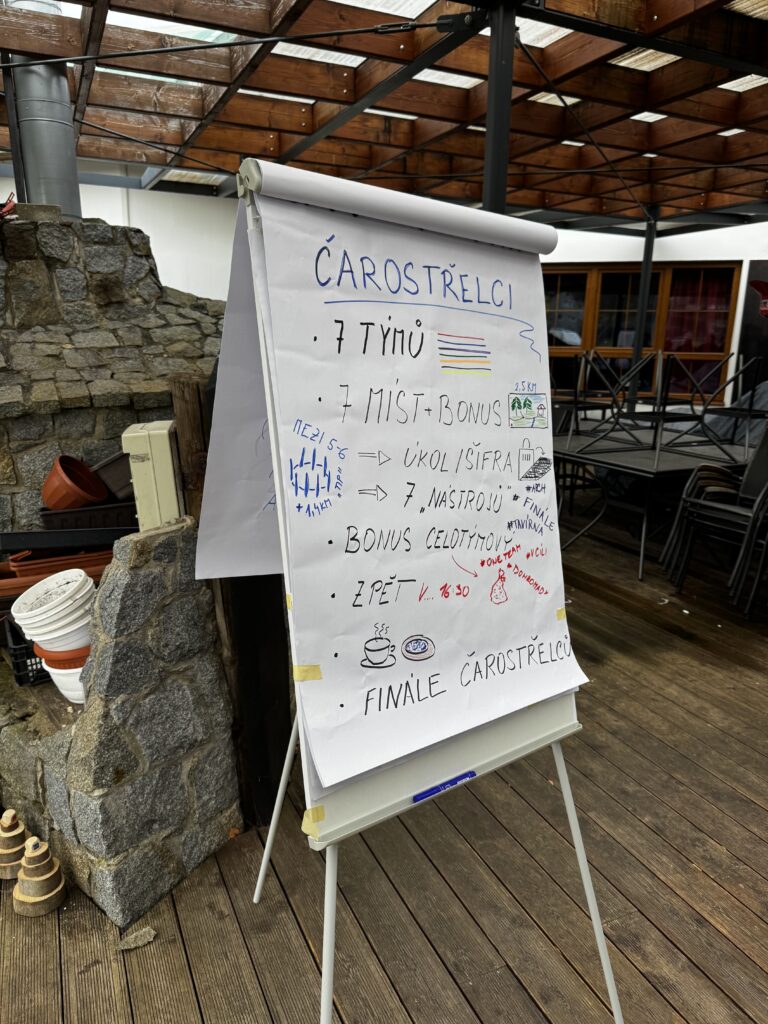 ČAROSTŘELCI
• 7 TÝMŮ
• 7 MÍST + BONUS
2,5 KM
MEZI 5-6
⇒ ÚKOL / ŠIFRA
"TP"
+ 1,4KM
⇒ 7 „NÁSTROJŮ"
#ARCH
#FINÁLE
#TAVÍRNA
• BONUS CELOTÝMOVÝ
#ONE TEAM
#V CÍLI
#DOHROMADY
• ZPĚT V... 16:30
•
• FINÁLE ČAROSTŘELCŮ